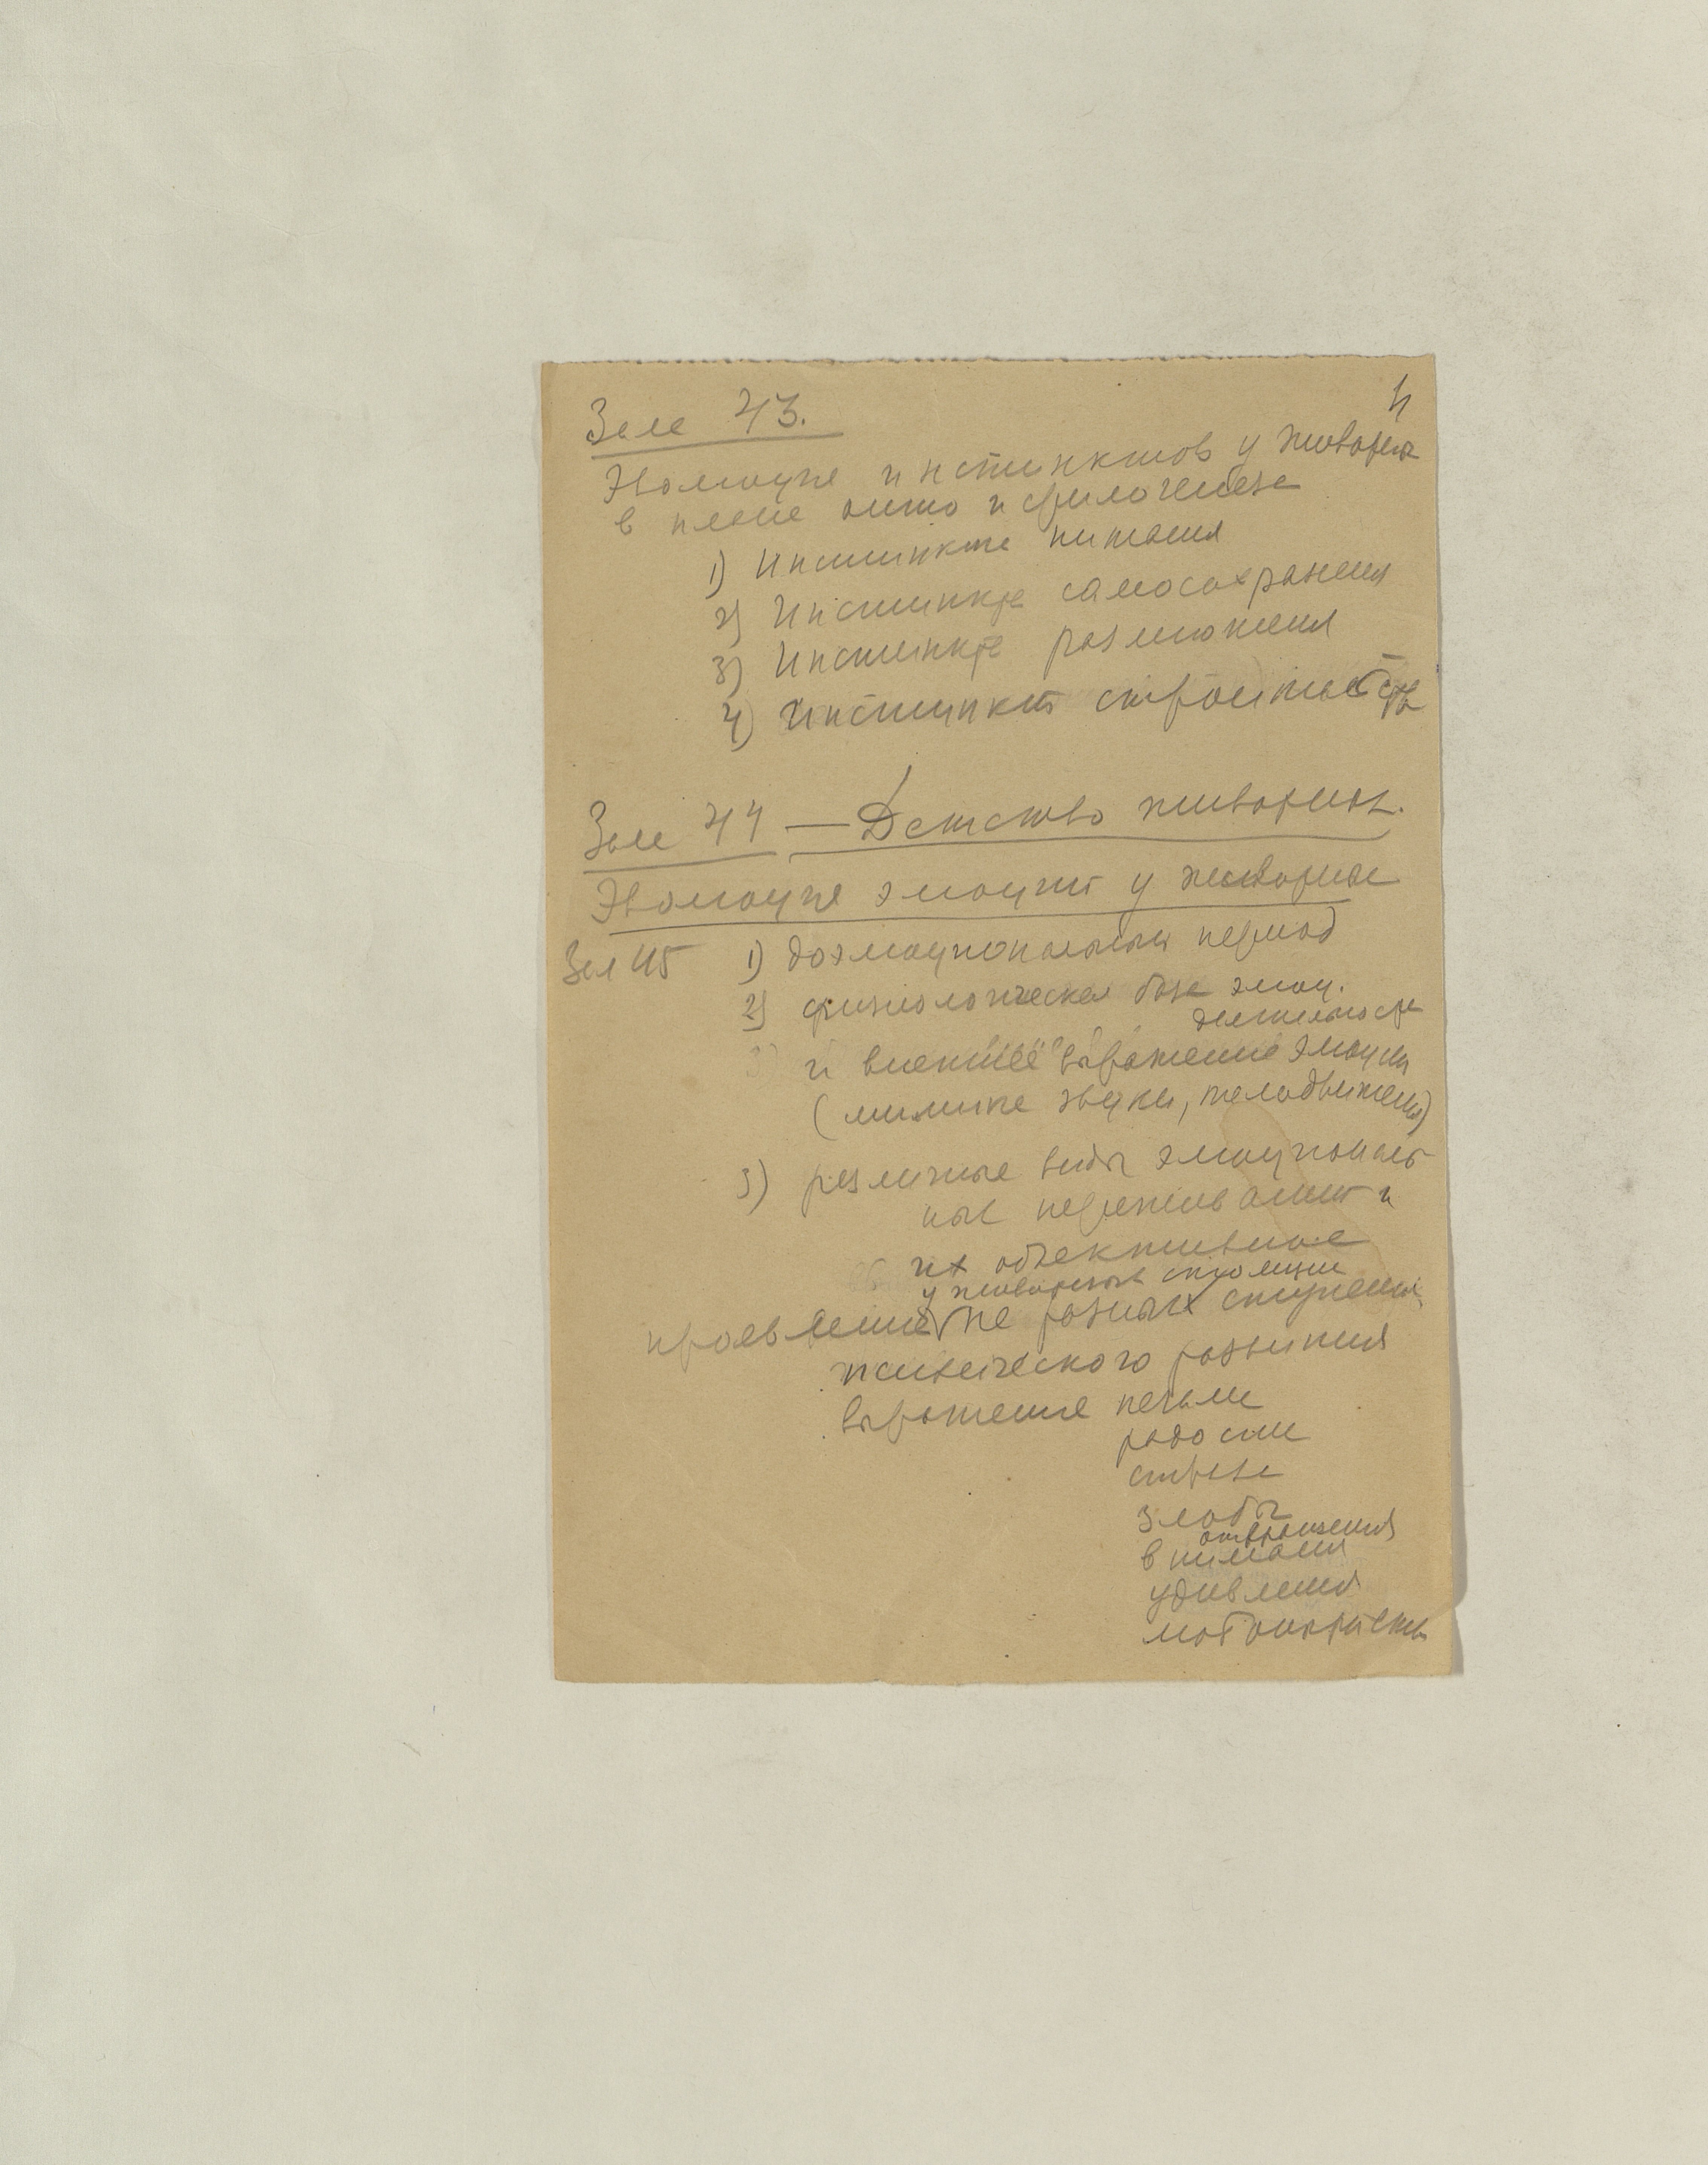 4
Зале 43.
Эволюция инстинктов у животных
в плане онто и филогенеза
1) Инстинкты питания
2) Инстинкты самосохранения
3) Инстинкты размножения
4) Инстинкты строительства
Зале 44 — Детство животных.
Эволюция эмоций у животных
Зал 45 1) доэмоциональный период
2) физиологическая база эмоц.
деятельности
и внешнее выражение эмоций
(мимика звуки, телодвижения)
3) различные виды эмоциональ
ных переживаний и
их объективное
у животных стоящих
проявление на разных ступенях
психического развития
выражение печали
радости
страха
злобы
отвращения
внимания
удивления
любопытства